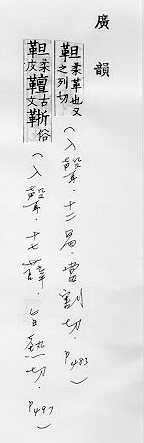 廣韻
靼柔革也又之列切（入聲．十二曷．當割切．P483）
靼柔皮䩥古文䩢俗（入聲．十七薛．旨熱切．P497）